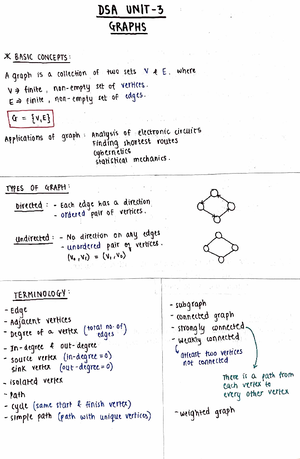 DSA UNIT-3
GRAPHS
* BASIC CONCEPTS:
A graph is a collection of two sets V & E, where
V → finite, non-empty set of vertices.
E → finite, non-empty set of edges.
G = {V,E}
Applications of graph: Analysis of electronic circuits
Finding shortest routes
Cybernetics
statistical mechanics.
TYPES OF GRAPH:
Directed: - Each edge has a direction
- ordered pair of vertices.
Undirected: - No direction on any edges
- unordered pair of vertices.
TERMINOLOGY:
- Edge
- Adjacent vertices
- Degree of a vertex (total no. of
edges)
- In-degree & out-degree
- source vertex (in-degree=0)
sink vertex (out-degree=0)
- isolated vertex
- Path
- cycle (same start & finish vertex)
- simple path (path with unique vertices)
- subgraph
- connected graph
- strongly connected
- weakly connected
↳ atleast two vertices
not connected
There is a path from
each vertex to
every other vertex
- weighted graph